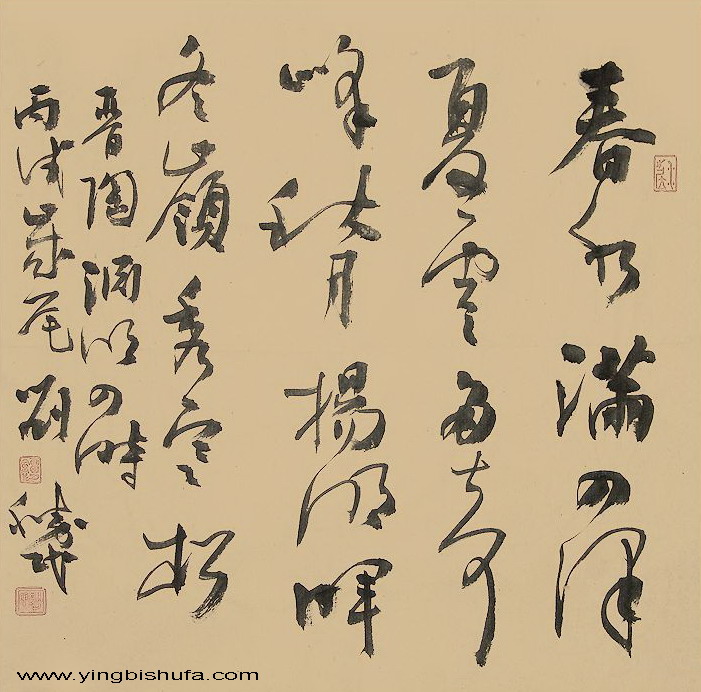 春水滿四澤
夏雲多奇
峰秋月揚明暉
冬嶺秀寒松
晉陶淵明四時
丙戌歲尾
www.yingbishufa.com